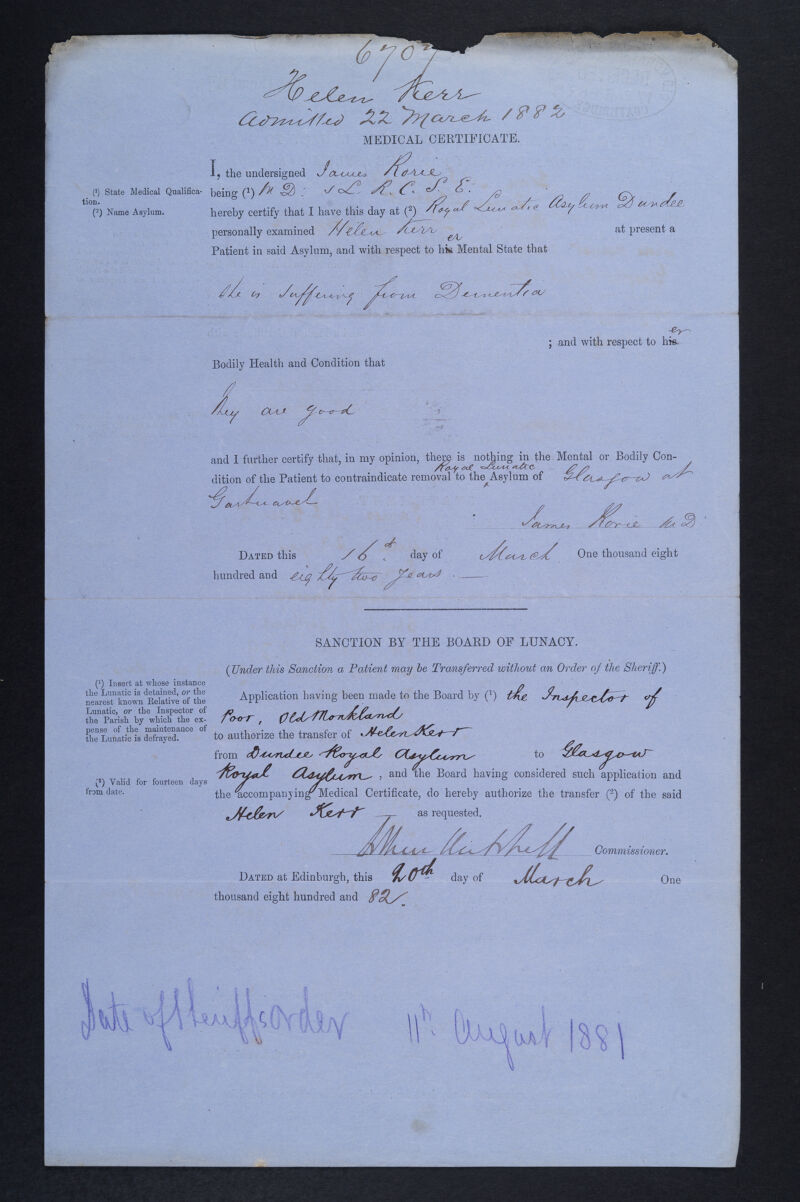 6707
Helen Kerr
Admitted 22 March 1882
MEDICAL CERTIFICATE.
I, the undersigned James Rorie
(1) State Medical Qualification.
being (1) M D: & L. R. C. S. E.
(2) Name Asylum.
hereby certify that I have this day at (2) Royal Lunatic Asylum Dundee
personally examined Helen Kerr at present a
Patient in said Asylum, and with respect to her Mental State that
She is suffering from Dementia
; and with respect to her
Bodily Health and Condition that
they are good
and I further certify that, in my opinion, there is nothing in the Mental or Bodily Con-
dition of the Patient to contraindicate removal to the Royal Lunatic Asylum of Glasgow at
Gartnavel
James Rorie M D
DATED this 16th. day of March One thousand eight
hundred and eighty two years.
SANCTION BY THE BOARD OF LUNACY.
(Under this Sanction a Patient may be Transferred without an Order of the Sheriff.)
(1) Insert at whose instance
the Lunatic is detained, or the
nearest known Relative of the
Lunatic, or the Inspector of
the Parish by which the ex-
pense of the maintenance of
the Lunatic is defrayed.
Application having been made to the Board by (1) the Inspector of
Poor, Old Monkland
to authorize the transfer of Helen Kerr
from Dundee Royal Asylum to Glasgow
Royal Asylum, and the Board having considered such application and
(2) Valid for fourteen days
from date.
the accompanying Medical Certificate, do hereby authorize the transfer (2) of the said
Helen Kerr as requested.
Arthur Mitchell Commissioner.
DATED at Edinburgh, this 20th day of March One
thousand eight hundred and 82.
Date of Sheriffs order 11th August 1881